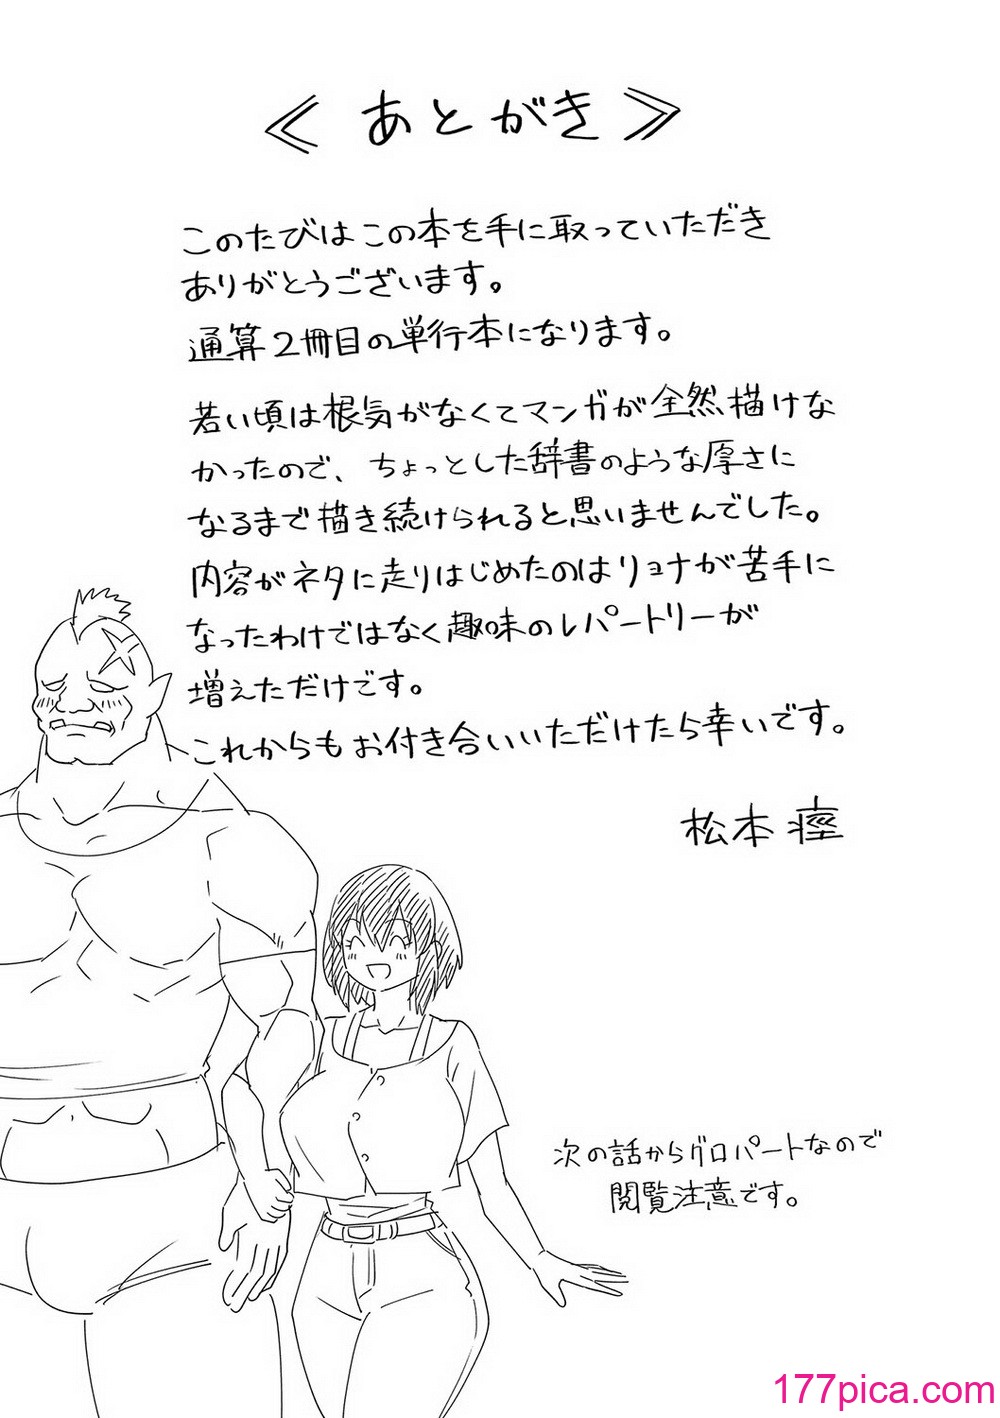 ≪ あとがき ≫
このたびはこの本を手に取っていただき
ありがとうございます。
通算2冊目の単行本になります。
若い頃は根気がなくてマンガが全然描けな
かったので、ちょっとした辞書のような厚さに
なるまで描き続けられると思いませんでした。
内容がネタに走りはじめたのはリョナが苦手に
なったわけではなく趣味のレパートリーが
増えただけです。
これからもお付き合いいただけたら幸いです。
松本痙
次の話からグロパートなので
閲覧注意です。
177pica.com